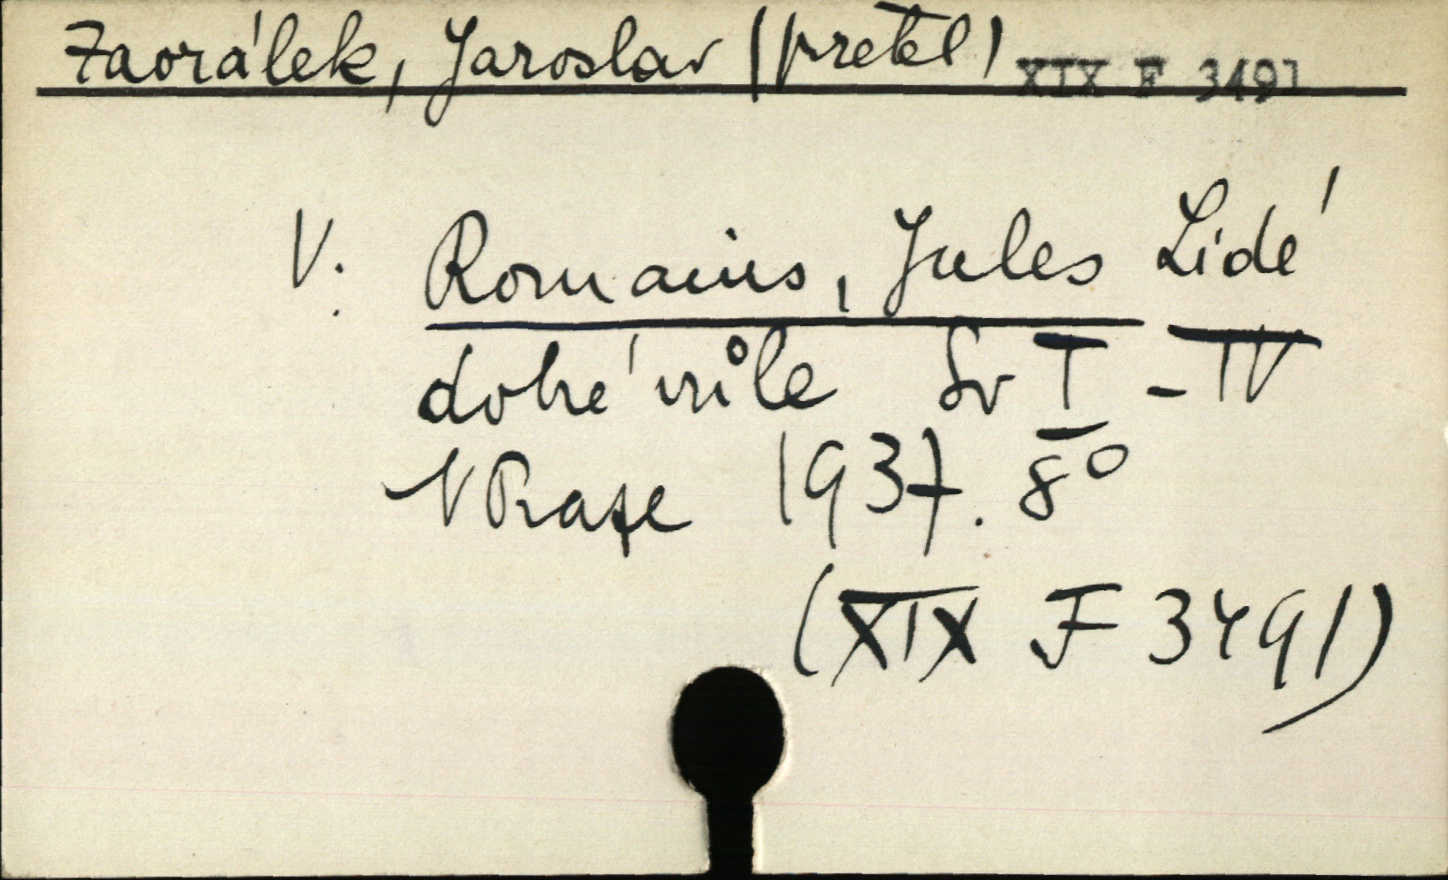 Zaorálek, Jaroslav (překl) XIX F 3491
V: Romains, Jules Lidé
dobré vůle Sv I - IV
V Praze 1937. 8°
(XIX F 3491)